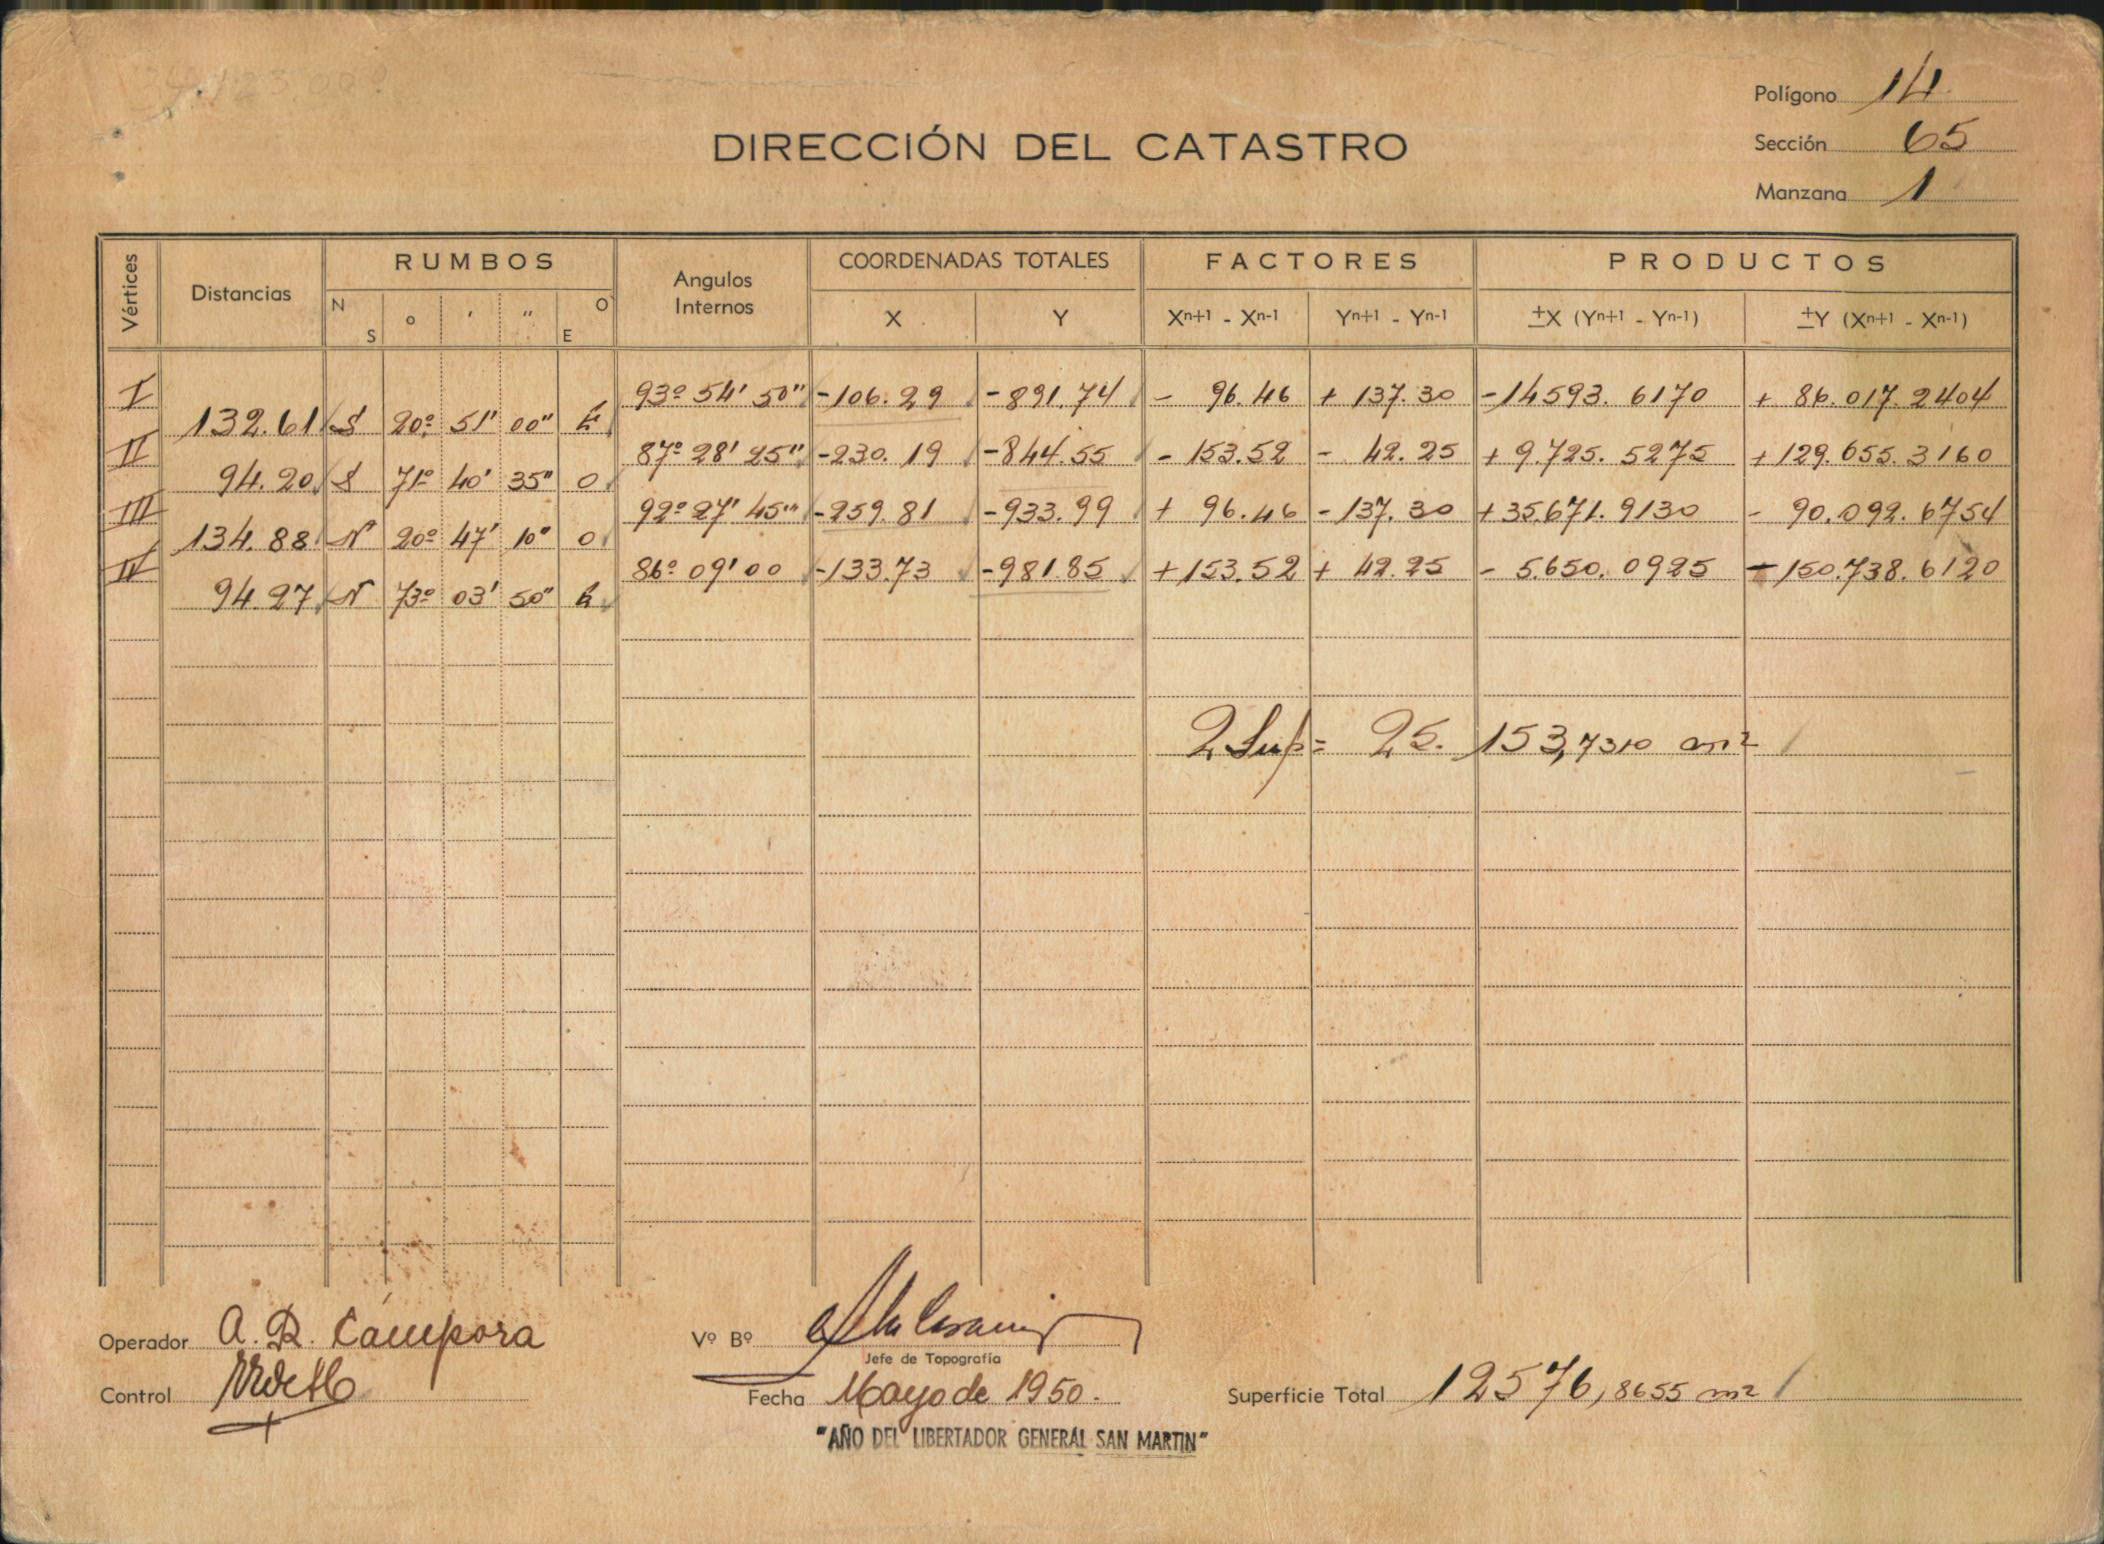 Polígono 14
DIRECCIÓN DEL CATASTRO
Sección 65
Manzana 1
Vértices Distancias RUMBOS Angulos Internos COORDENADAS TOTALES FACTORES PRODUCTOS
N S o ' " O E X Y Xn+1 - Xn-1 Yn+1 - Yn-1 ±X (Yn+1 - Yn-1) ±Y (Xn+1 - Xn-1)
I 93º 54' 50" -106.29 -891.74 - 96.46 + 137.30 -14593.6170 + 86.017.2404
132.61 S 20º 51' 00" E
II 87º 28' 25" -230.19 -844.55 - 153.52 - 42.25 + 9.725.5275 +129.655.3160
94.20 S 71º 40' 35" O
III 92º 27' 45" -259.81 -933.99 + 96.46 - 137.30 +35.671.9130 - 90.092.6754
134.88 N 20º 47' 10" O
IV 86º 09' 00 -133.73 -981.85 +153.52 + 42.25 - 5.650.0925 -150.738.6120
94.27 N 73º 03' 50" E
2 Sup = 25.153,7310 m2
Operador A. R. Cámpora
Vº Bº
Jefe de Topografía
Control
Fecha Mayo de 1950.
Superficie Total 12576,8655 m2
"AÑO DEL LIBERTADOR GENERAL SAN MARTIN"